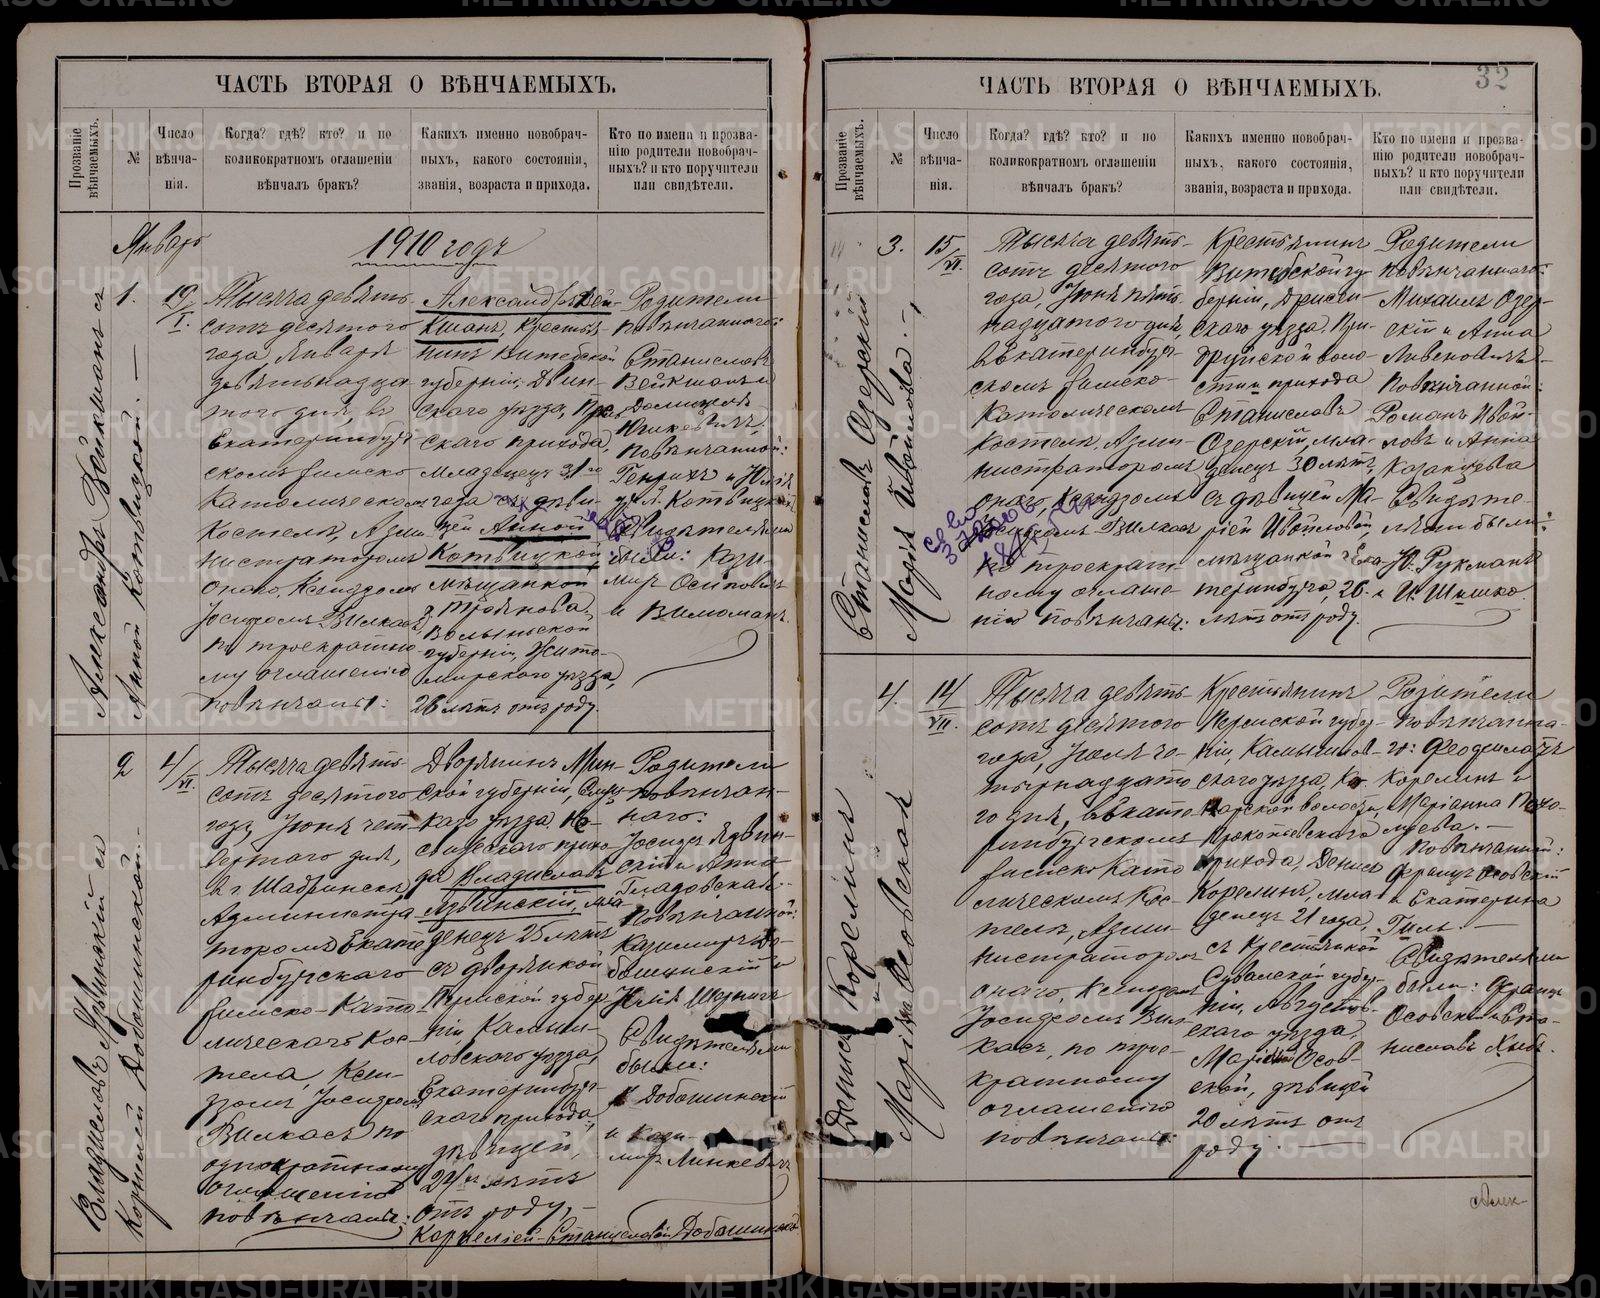 ЧАСТЬ ВТОРАЯ О ВѢНЧАЕМЫХЪ.
Прозваніе вѣнчаемыхъ.
№
Число вѣнча-нія.
Когда? гдѣ? кто? и по
коликократномъ оглашеніи
вѣнчалъ бракъ?
Какихъ именно новобрач-
ныхъ, какого состоянія,
званія, возраста и прихода.
Кто по имени и прозва-
нію родители новобрач-
ныхъ? и кто поручители
или свидѣтели.
Январь
1910 годъ
Александръ Вейкшанъ съ
Анной Котвицкой. —
1.
19/I.
Тысяча девять-
сотъ десятого
года Января
девятьнадца-
того дня, въ
Екатеринбург-
скомъ римско-
католическомъ
костелѣ, Адми-
нистраторомъ
онаго, Ксендзомъ
Іосифомъ Вилкасъ
по троекратно-
му оглашенію
повѣнчаны:
Александръ Вей-
кшанъ, крестья-
нинъ Витебской
губерніи, Двин-
скаго уѣзда,
скаго прихода,
младенецъ 31-го
года съ дѣви-
цей Анной
Котвицкой,
мѣщанкой
г. Троянова,
Волынской
губерніи, Жито-
мирскаго уѣзда,
26 лѣтъ отъ роду.
Родители
повѣнчаннаго:
Станиславъ
Вейкшанъ и
повѣнчанной:
Генрихъ и Юлія
Котвицкіе
Свидѣтелями
были: Кази-
миръ Осиповичъ
и
Владиславъ Язвинскій съ
Корнеліей Добошинской.
2
4/VI.
Тысяча девять-
сотъ десятого
года Іюня чет-
вертаго дня,
въ г. Шадринскѣ,
Администра-
торомъ Екате-
ринбургскаго
римско-като-
лическаго кос-
тела, Ксен-
дзомъ Іосифомъ
Вилкасъ по
однократному
оглашенію
повѣнчаны:
Дворянинъ Мин-
ской губерніи, Слуц-
каго уѣзда,
прихо-
да Владиславъ
Язвинскій, мла-
денецъ 25 лѣтъ
съ дворянкой
Пермской губер-
ніи, Камыш-
ловскаго уѣзда,
Екатеринбург-
скаго прихода,
дѣвицей,
лѣтъ
отъ роду, —
Корнеліей-Станиславой Добошинской
Родители
повѣнчан-
наго:
Іосифъ Язвин-
скій и Анна
Гладовская —
повѣнчанной:
Казимиръ До-
бошинскій и
Юлія
Свидѣтелями
были:
Добошинскій
и Кази-
миръ Линкевичъ
ЧАСТЬ ВТОРАЯ О ВѢНЧАЕМЫХЪ.
32
Прозваніе вѣнчаемыхъ.
№
Число вѣнча-нія.
Когда? гдѣ? кто? и по
коликократномъ оглашеніи
вѣнчалъ бракъ?
Какихъ именно новобрач-
ныхъ, какого состоянія,
званія, возраста и прихода.
Кто по имени и прозва-
нію родители новобрач-
ныхъ? и кто поручители
или свидѣтели.
Станиславъ Озерскій и
Марія Ивойлова. —
3.
15/VI.
Тысяча девять-
сотъ десятого
года, Іюня пят-
надцатого дня,
въ Екатеринбур-
скомъ римско-
католическомъ
костелѣ, Адми-
нистраторомъ
онаго, Ксендзомъ
Іосифомъ Вилкасъ
по троекрат-
ному оглаше-
нію повѣнчаны:
Крестьянинъ
Витебской гу-
берніи, Дрисен-
скаго уѣзда, При-
друйской воло-
сти и прихода
Станиславъ
Озерскій, мла-
денецъ 30 лѣтъ,
съ дѣвицей Ма-
ріей Ивойловой,
мѣщанкой г. Ека-
теринбурга, 26-и
лѣтъ отъ роду.
Родители
повѣнчаннаго:
Михаилъ Озер-
скій и Анна
повѣнчанной:
Романъ Ивой-
ловъ и Анна
Казанцева
Свидѣте-
лями были:
Ю. Рукманъ
И. Шишко.
Денисъ Корелинъ
и
Маріанна Осовская
4.
14/VII.
Тысяча девять-
сотъ десятого
года, Іюля че-
тырнадцато
го дня, въ Екате-
ринбургскомъ
римско-като-
лическомъ кос-
телѣ, Адми-
нистраторомъ
онаго, Ксендзомъ
Іосифомъ Вил-
касъ, по трое-
кратному
оглашенію
повѣнчаны
Крестьянинъ
Пермской губер-
ніи, Камышлов-
скаго уѣзда,
волости,
Прокопьевскаго
прихода, Денисъ
Корелинъ, мла-
денецъ 21 года,
съ крестьянкой
Сувалкской губер-
ніи, Августов-
скаго уѣзда,
Осов-
ской, дѣвицей
20 лѣтъ отъ
роду.
Родители
повѣнчанна-
го:
Корелинъ и
Маріанна
повѣнчанной:
Францъ Осовскій
и Екатерина
Гиль. —
Свидѣтелями
были: Францъ
Осовскій и Ста-
ниславъ
METRIKI.GASO-URAL.RU